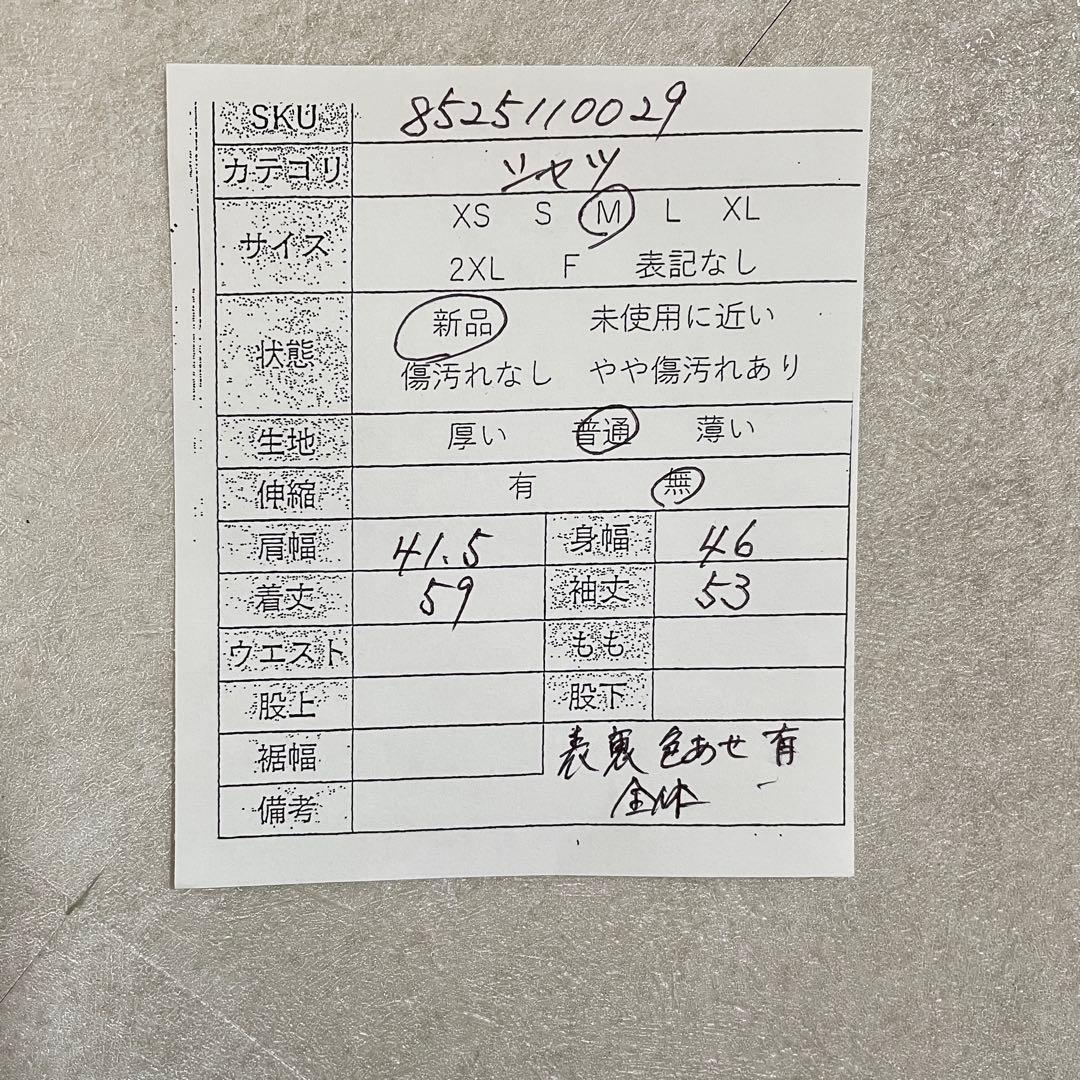 SKU 8525110029
カテゴリ シャツ
サイズ XS S M L XL
2XL F 表記なし
状態 新品 未使用に近い
傷汚れなし やや傷汚れあり
生地 厚い 普通 薄い
伸縮 有 無
肩幅 41.5 身幅 46
着丈 59 袖丈 53
ウエスト もも
股上 股下
裾幅 表裏 色あせ 有
備考 全体